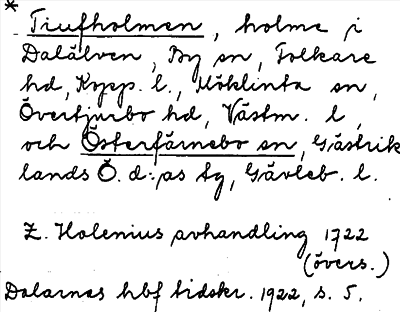 * Tiufholmen, holme i
Dalälven, By sn, Folkare
hd, Kopp. l., Möklinta sn,
Övertjurbo hd, Västm. l,
och Österfärnebo sn, Gästrik
lands Ö. d:as tg, Gävleb. l.
Z. Holenius avhandling 1722
(övers.)
Dalarnas hbf tidskr. 1922, s. 5.